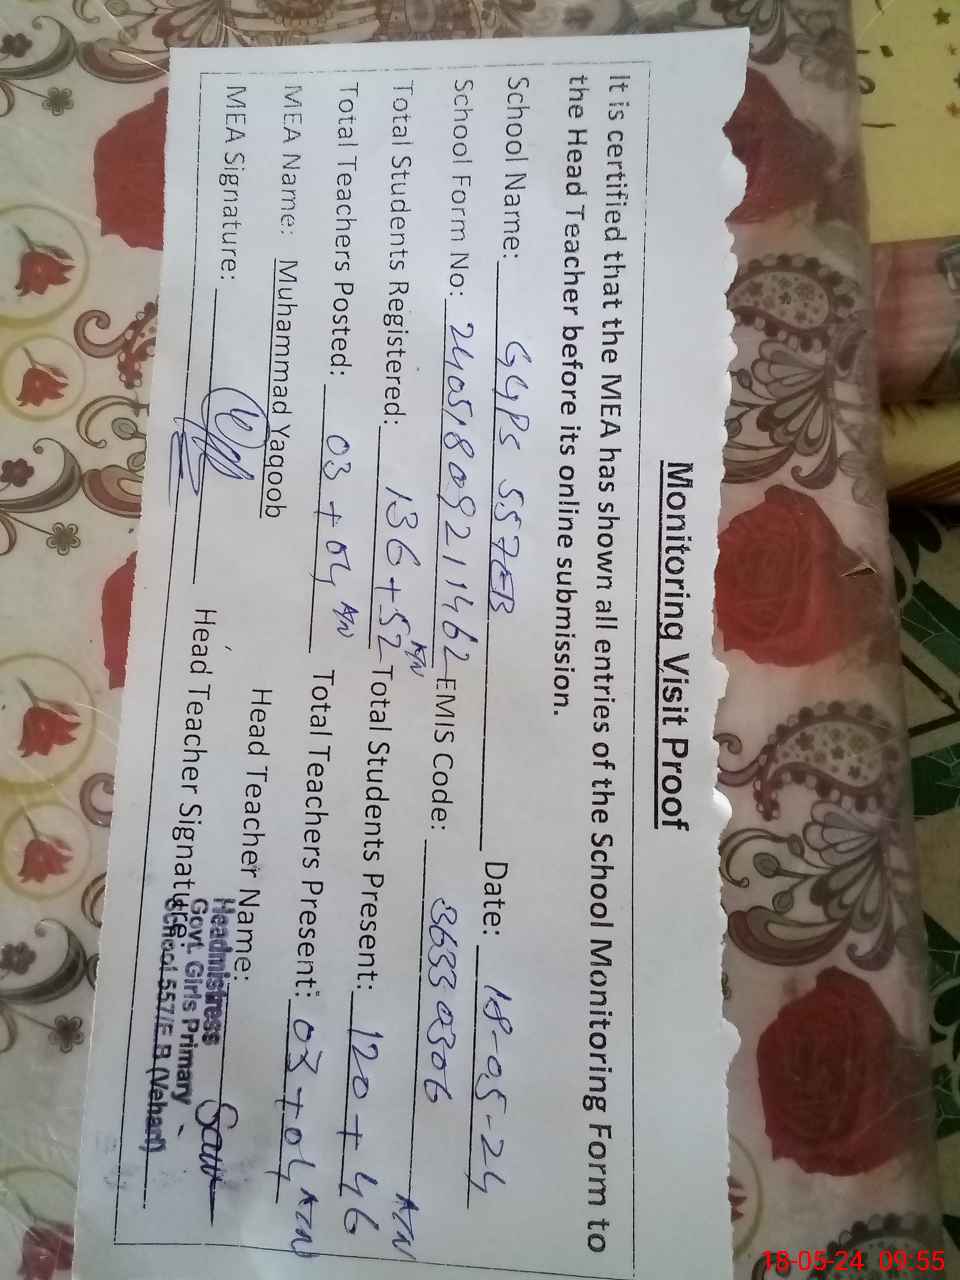 Monitoring Visit Proof
It is certified that the MEA has shown all entries of the School Monitoring Form to
the Head Teacher before its online submission.
School Name: GGPS 557EB Date: 18-05-24
School Form No: 24051809211462 EMIS Code: 36330306
Total Students Registered: 136+52 Total Students Present: 120+46
Total Teachers Posted: 03+04 Total Teachers Present: 03+04
MEA Name: Muhammad Yaqoob Head Teacher Name:
MEA Signature: Head Teacher Signature:
Headmistress
Govt. Girls Primary
School 557/E.B (Vehari)
18-05-24 09:55